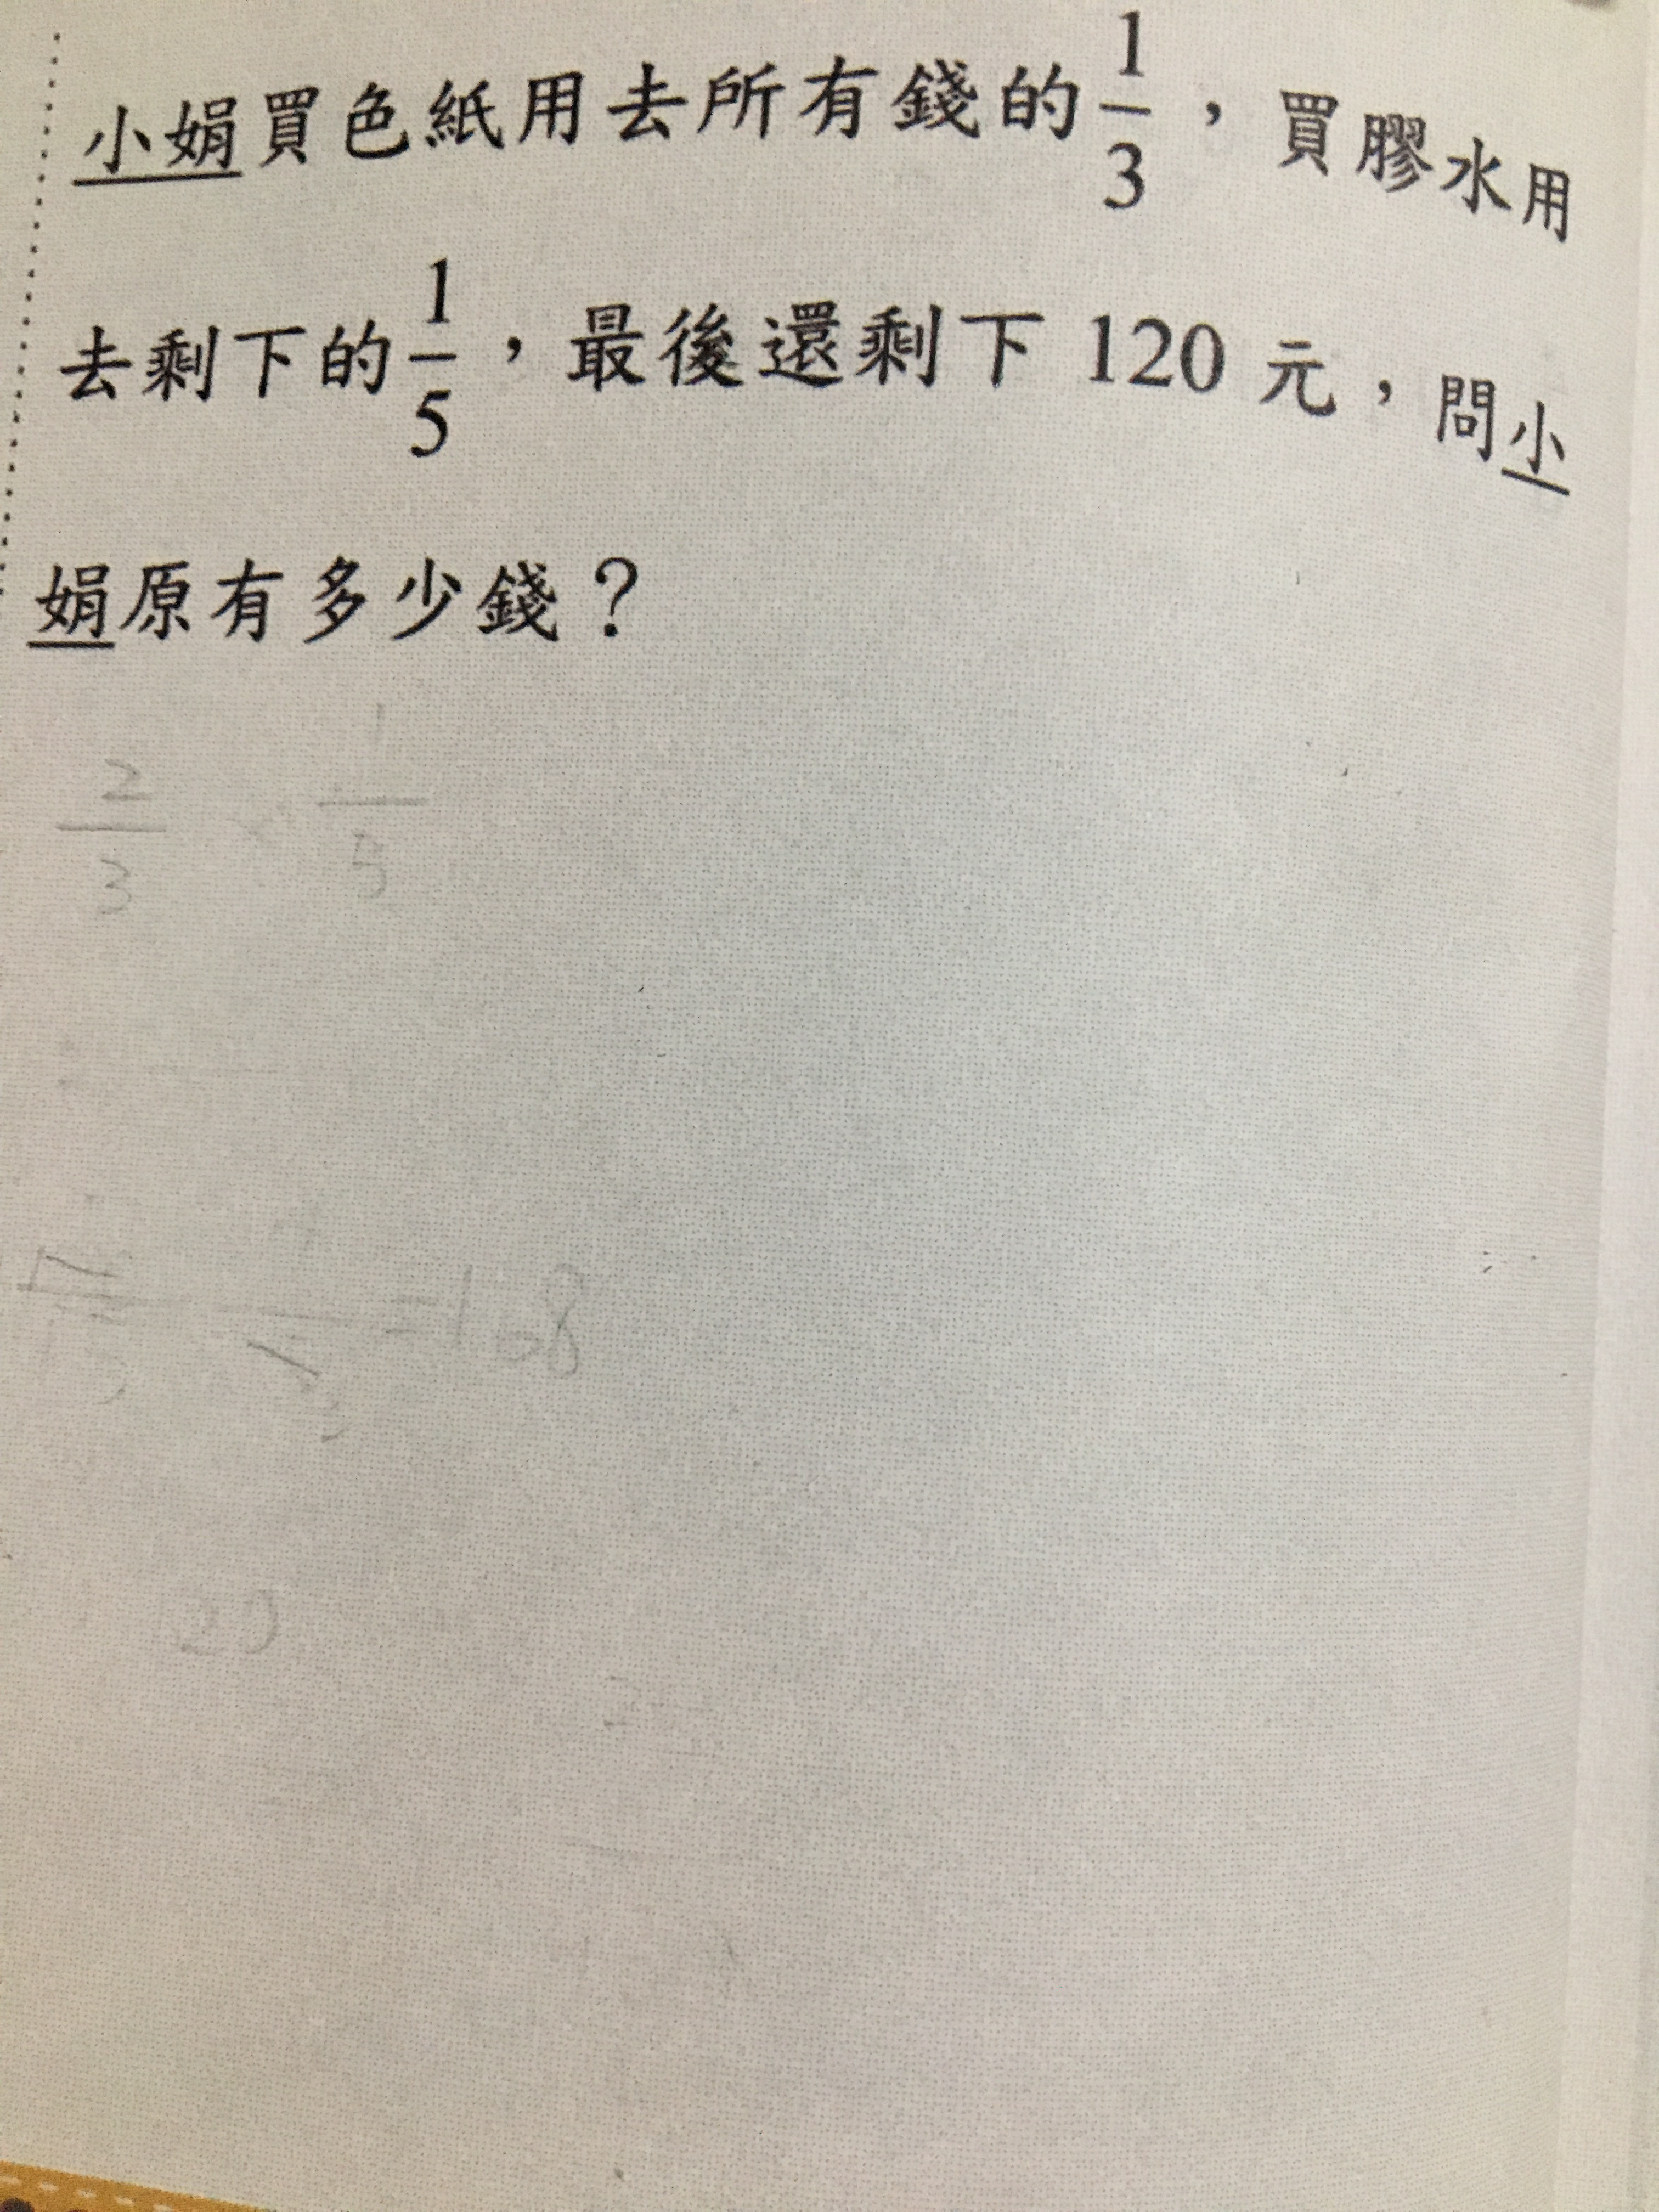 小娟買色紙用去所有錢的1/3，買膠水用
去剩下的1/5，最後還剩下 120 元，問小
娟原有多少錢？
2/3 × 1/5
=168
20